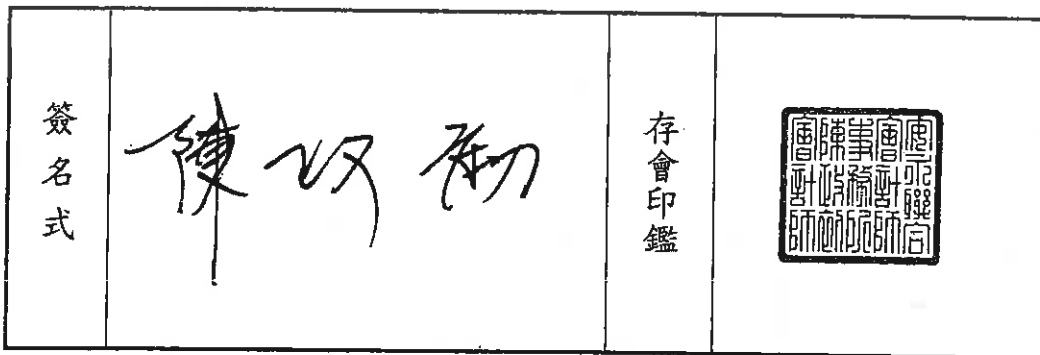 簽名式
陳政初
存會印鑑
安永聯合
會計師
事務所
陳政初
會計師